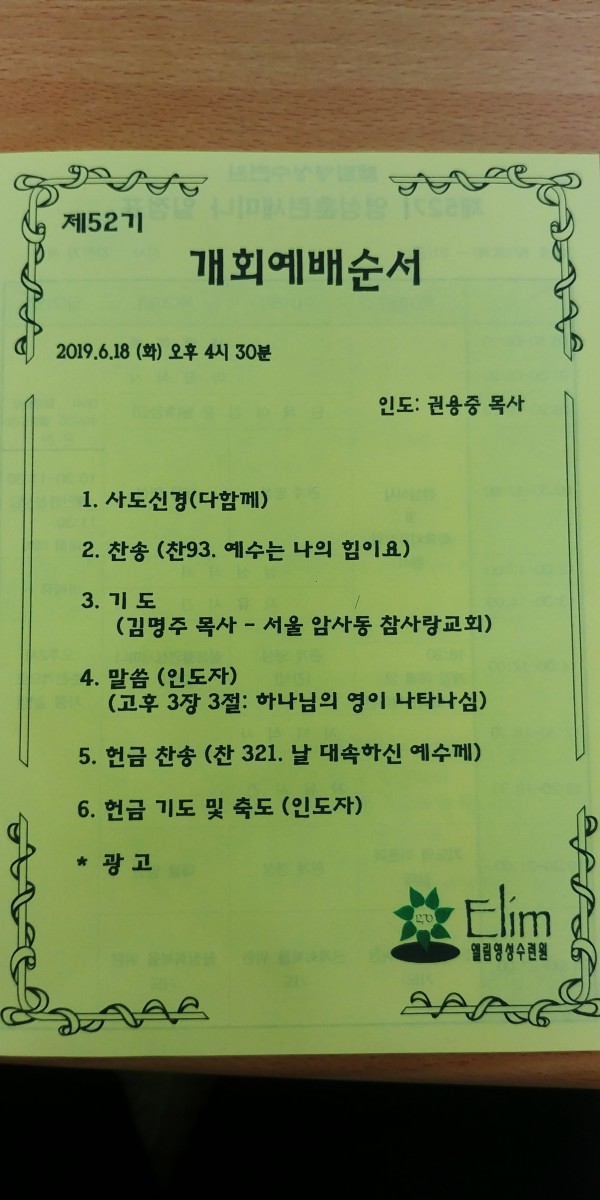 제52기
개회예배순서
2019.6.18 (화) 오후 4시 30분
인도: 권용중 목사
1. 사도신경(다함께)
2. 찬송 (찬93. 예수는 나의 힘이요)
3. 기 도
(김명주 목사 - 서울 암사동 참사랑교회)
4. 말씀 (인도자)
(고후 3장 3절: 하나님의 영이 나타나심)
5. 헌금 찬송 (찬 321. 날 대속하신 예수께)
6. 헌금 기도 및 축도 (인도자)
* 광 고
Elim
엘림영성수련원